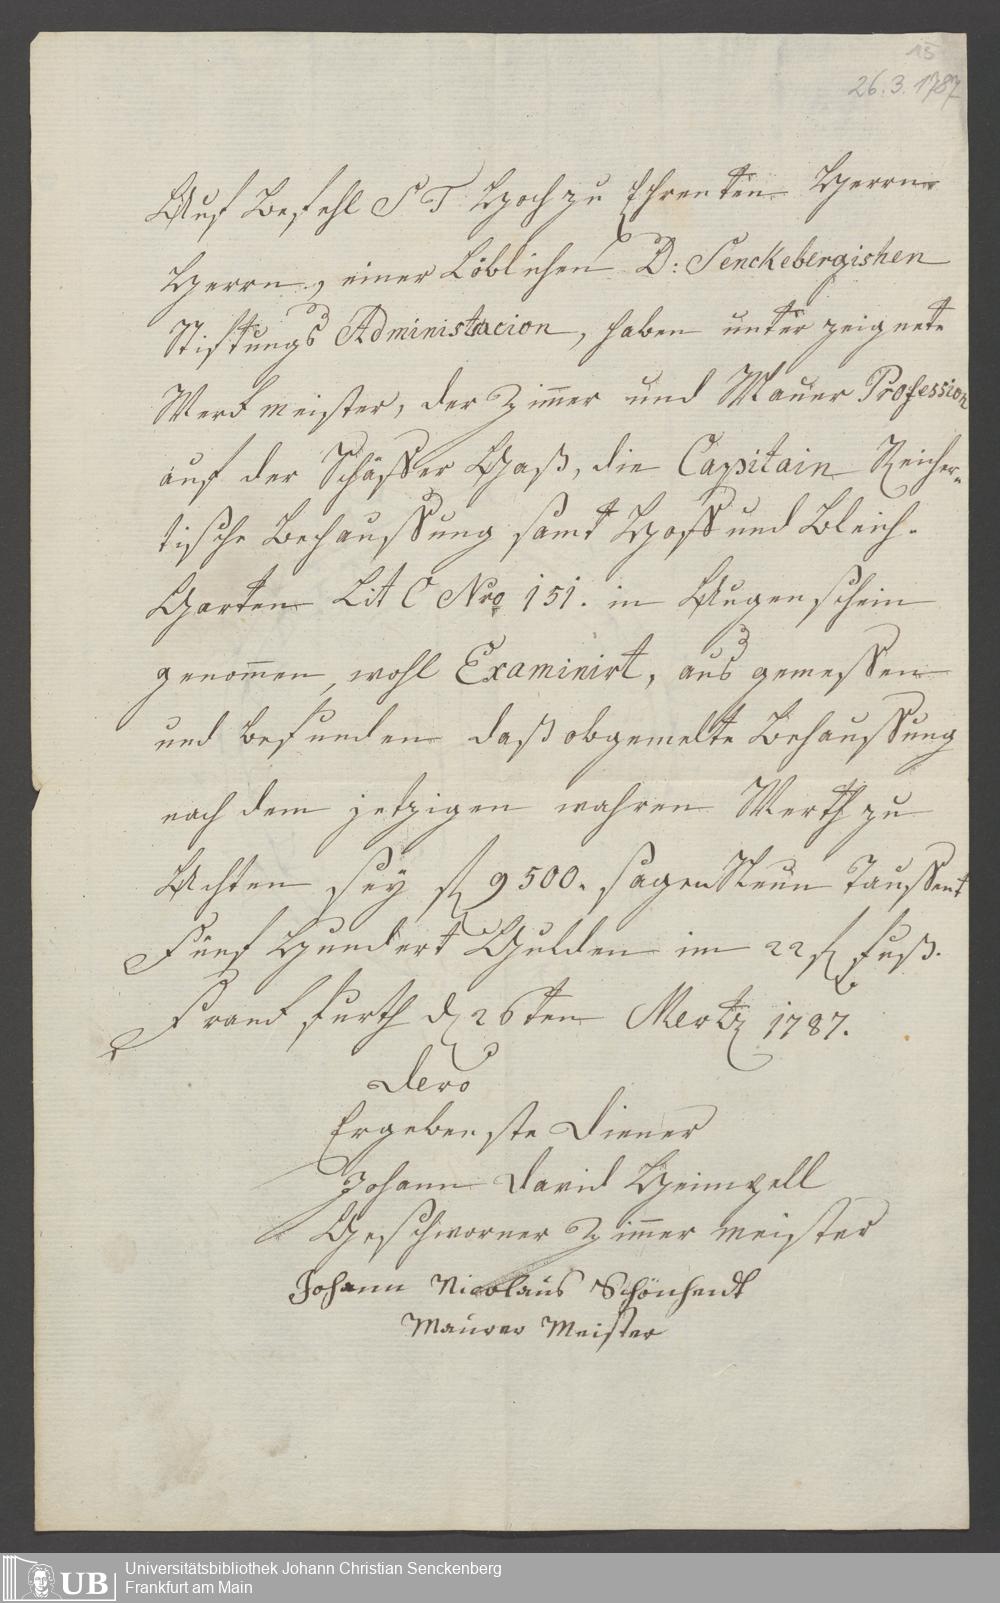 15
26.3.1787
Auf Befehl S T Hoch zu Ehrenten Herrn
Herrn, einer Löblichen D: Senckebergishen
Stiftungs Administracion, haben unter zeignete
Werck meister, der Zim̅er und Mauer Profession
auf der Schäffer Gaß, die Capitain Reicher„
tische Behaussung samt Hoff und Bleich-
Garten Lit C Nro 151. in Augen schein
genom̅en, wohl Examinirt, aus gemessen
und befunden daß obgemelte Behaussung
nach dem jetzigen wahren Werth zu
Achten sey fl 9500. sagen Neun Taussent
Fünf Hundert Gulden im 22 fl fuß.
Franckfurth d 26ten Mertz 1787.
Dero
Ergebenste Diener
Johann David Heimpell
Geschworner Zim̅er meister
Johann Nicolaus Schönheidt
Maurer Meister
UB
Universitätsbibliothek Johann Christian Senckenberg
Frankfurt am Main